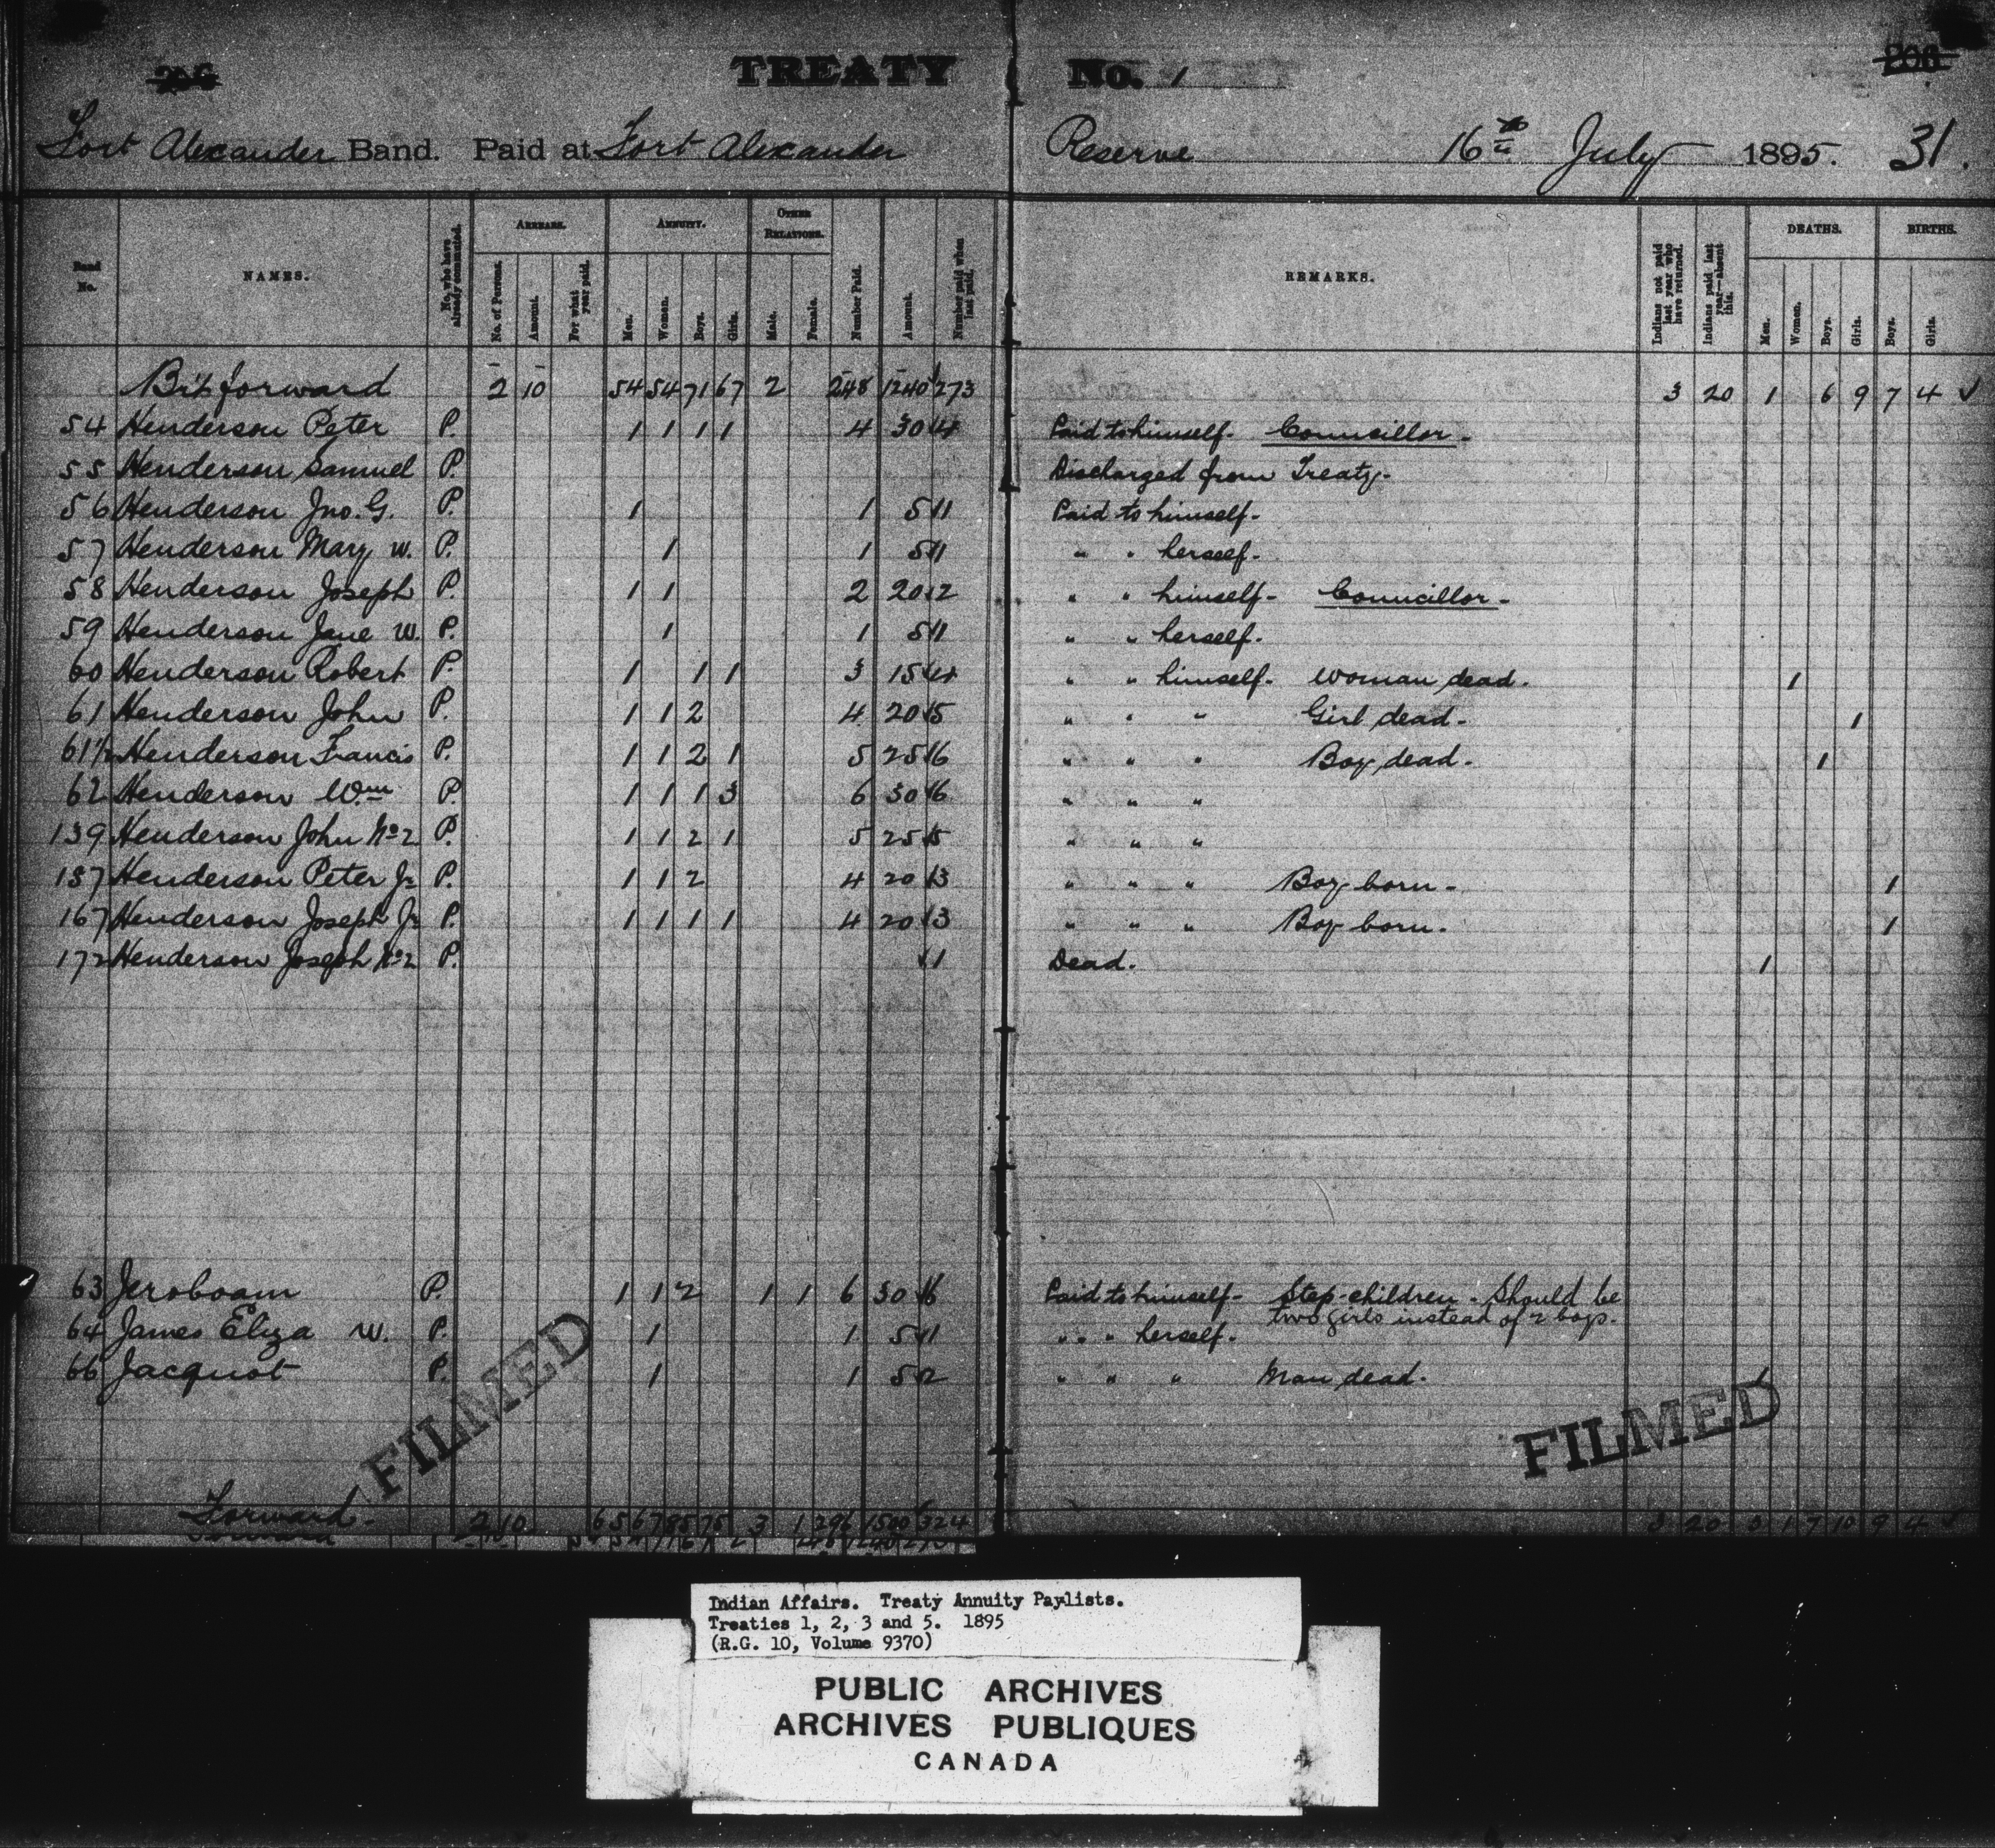 TREATY No. 1
Fort Alexander Band. Paid at Fort Alexander Reserve 16th July 1895. 31.
Band No. NAMES. No. who have already commuted. ARREARS. ANNUITY. OTHER RELATIONS. Number Paid. Amount. Number paid when last paid. REMARKS. Indians not paid last year who have returned. Indians paid last year—absent this. DEATHS. BIRTHS.
No. of Persons. Amount. For what year paid. Men. Women. Boys. Girls. Male. Female. Men. Women. Boys. Girls. Boys. Girls.
Bt forward 2 10 54 54 71 67 2 248 1240 273 3 20 1 6 9 7 4 ✓
54 Henderson Peter P. 1 1 1 1 4 30 4 Paid to himself. Councillor.
55 Henderson Samuel P. Discharged from Treaty.
56 Henderson Jno. G. P. 1 1 5 1 Paid to himself.
57 Henderson Mary W. P. 1 1 5 1 " " herself.
58 Henderson Joseph P. 1 1 2 20 2 " " himself. Councillor.
59 Henderson Jane W. P. 1 1 5 1 " " herself.
60 Henderson Robert P. 1 1 1 3 15 4 " " himself. Woman dead. 1
61 Henderson John P. 1 1 2 4 20 5 " " " Girl dead. 1
61½ Henderson Francis P. 1 1 2 1 5 25 6 " " " Boy dead. 1
62 Henderson Wm P. 1 1 1 3 6 30 6 " " "
139 Henderson John No 2 P. 1 1 2 1 5 25 5 " " "
157 Henderson Peter Jr P. 1 1 2 4 20 3 " " " Boy born. 1
167 Henderson Joseph Jr P. 1 1 1 1 4 20 3 " " " Boy born. 1
172 Henderson Joseph No 2 P. 1 Dead. 1
63 Jeroboam P. 1 1 2 1 1 6 30 6 Paid to himself. Step-children. Should be
two girls instead of 2 boys.
64 James Eliza W. P. 1 1 5 1 " " herself.
66 Jacquot P. 1 1 5 2 " " " Man dead. 1
FILMED FILMED
Forward. 2 10 65 67 85 75 3 1 296 1500 324 3 20 3 1 7 10 9 4 ✓
Indian Affairs. Treaty Annuity Paylists.
Treaties 1, 2, 3 and 5. 1895
(R.G. 10, Volume 9370)
PUBLIC ARCHIVES
ARCHIVES PUBLIQUES
CANADA